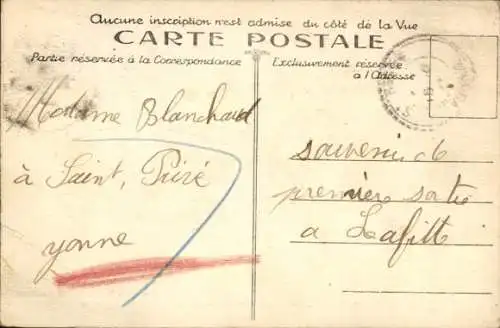 Aucune inscription n'est admise du côté de la Vue
CARTE POSTALE
Partie réservée à la Correspondance
Exclusivement réservée
à l'Adresse
Madame Blanchard
à Saint, Privé
yonne
souvenir de
première sortie
a Lafitte